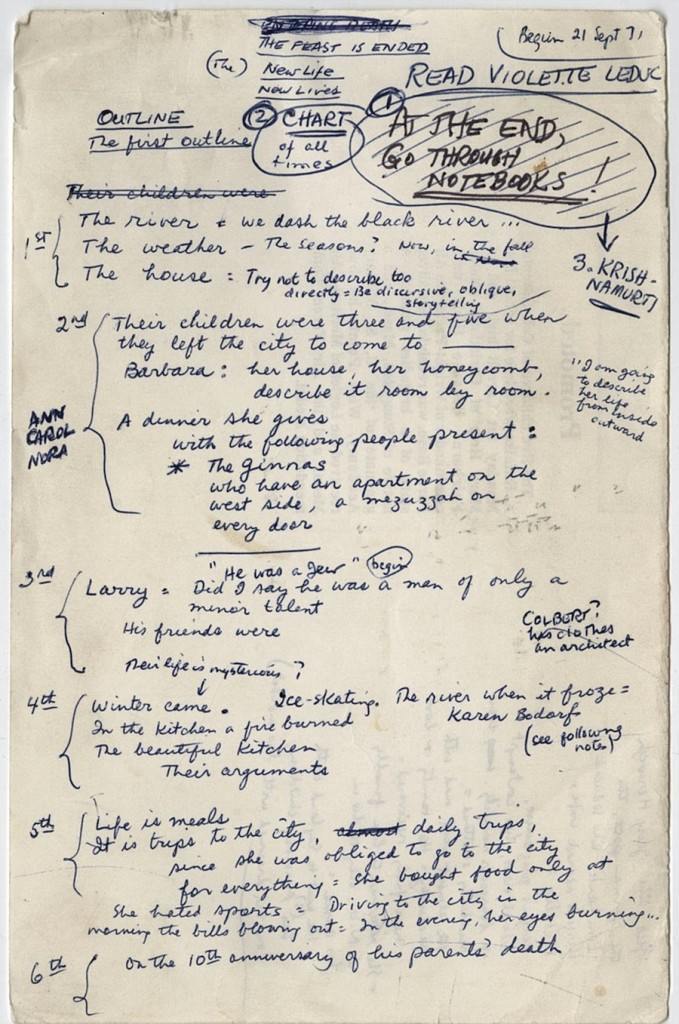 THE FEAST IS ENDED
(The) New Life
New Lives
Begin 21 Sept 71
READ VIOLETTE LEDUC
OUTLINE
The first outline
② CHART
of all
times
①
AT THE END,
GO THROUGH
NOTEBOOKS!
3. KRISH-
NAMURTI
Their children were
1st
The river & we dash the black river ...
The weather – The seasons? Now, in the fall
The house = Try not to describe too
directly = Be discursive, oblique,
storytelling
2nd
Their children were three and five when
they left the city to come to ____
Barbara: her house, her honeycomb,
describe it room by room.
"I am going
to describe
her life
from inside
outward
ANN
CAROL
NORA
A dinner she gives
with the following people present:
* The Ginnas
who have an apartment on the
west side, a mezuzzah on
every door
3rd
"He was a Jew" begin
Larry = Did I say he was a man of only a
minor talent
His friends were
COLBERT?
his clothes
an architect
Their life is mysterious?
4th
Winter came. Ice-skating. The river when it froze =
In the kitchen a fire burned
Karen Bodorf
(see following
notes)
The beautiful kitchen
Their arguments
5th
Life is meals
It is trips to the city, almost daily trips,
since she was obliged to go to the city
for everything = She bought food only at
She hated sports = Driving to the city in the
morning the bills blowing out = In the evening, her eyes burning...
6th
On the 10th anniversary of his parents' death